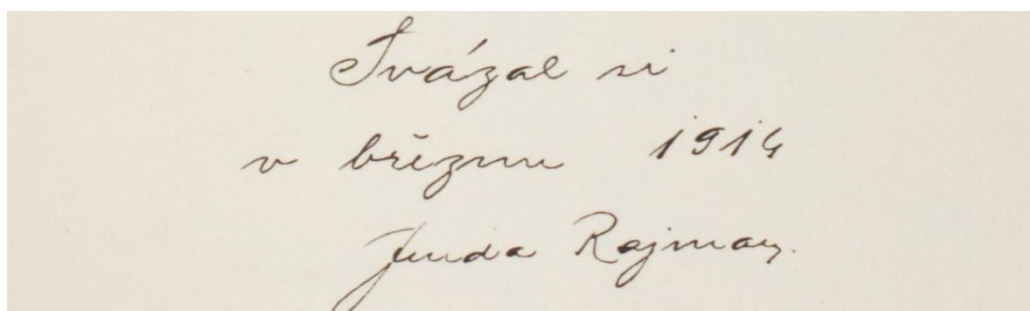 Svázal si
v březnu 1914
Jenda Rajman.